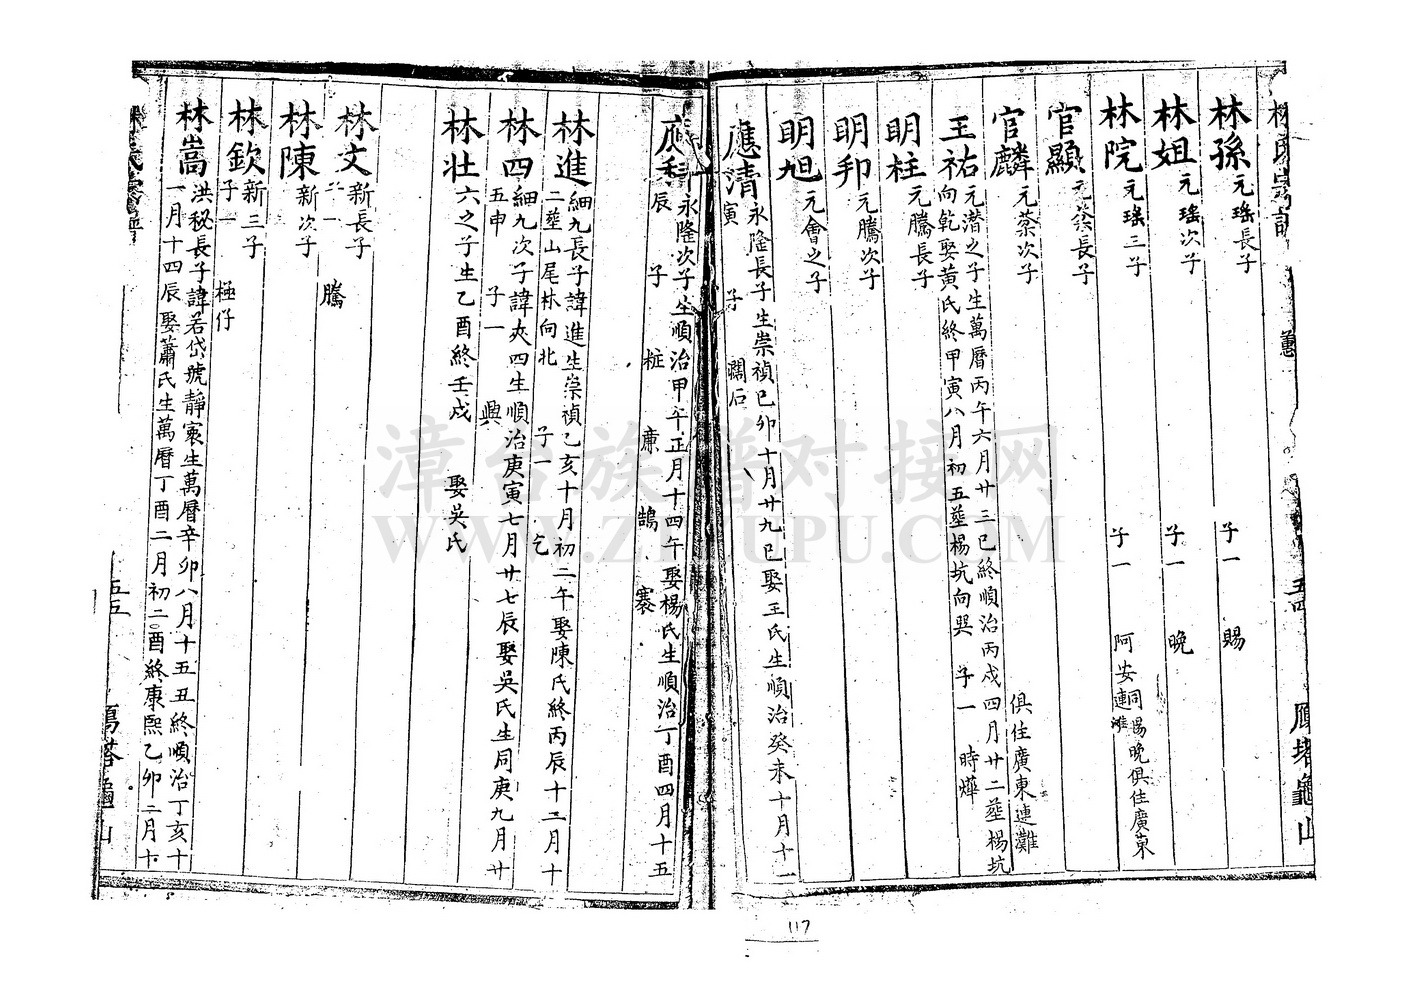 林孫 元瑤長子 子一 賜
林姐 元瑤次子 子一 晚
林院 元瑤三子 子一 阿安連灘 同賜晚俱住廣東
官顯 元荼長子
官麟 元荼次子 俱住廣東連灘
王祐 元潛之子生萬曆丙午六月廿三巳終順治丙戍四月廿二塟楊坑
向乾娶黃氏終甲寅八月初五塟楊坑向巽 子一 時燁
明柱 元騰長子
明邦 元騰次子
明旭 元會之子
應清 永隆長子生崇禎己卯十月廿九巳娶王氏生順治癸未十月十一
寅 子 瀾石
應科 永隆次子生順治甲午正月十四午娶楊氏生順治丁酉四月十五
辰 子 粧 廉 鵠 寨
林進 細九長子諱進生崇禎乙亥十月初二午娶陳氏終丙辰十二月十
二塟山尾林向北 子一 乞
林四 細九次子諱夾四生順治庚寅七月廿七辰娶吳氏生同庚九月廿
五申 子一 興
林壮 六之子生乙酉終壬戍 娶吳氏
林文 新長子
子一 騰
林陳 新次子
林欽 新三子
子一 極仔
林嵩 洪秘長子諱若岱號靜寰生萬曆辛卯八月十五丑終順治丁亥十
一月十四辰娶蕭氏生萬曆丁酉二月初二酉終康熙乙卯二月十
五五
五四
鳳塔龜山
漳台族谱对接网
WWW.ZTZUPU.COM
117